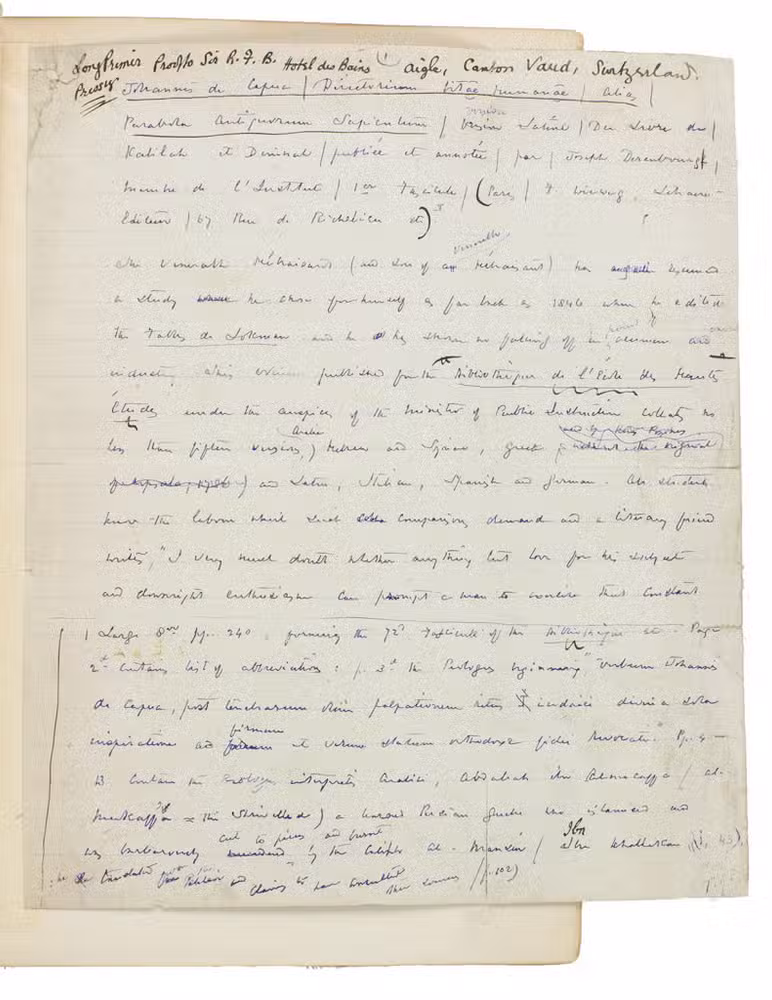 Long Primer Proof to Sir R. F. B. Hotel des Bains Aigle, Canton Vaud, Switzerland.
Press
Johannis de Capua | Directorium vitae humanae | alias |
Parabola Antiquorum Sapientum | version Latine | Du Livre de |
Kalilah et Dimnah | publiée et annotée | par | Joseph Derenbourg |
Membre de l'Institut | 1er Fascicule | (Paris | F. Vieweg, Libraire-
Editeur | 67 Rue de Richelieu etc)
venerable
The Hébraisant (and son of an Hébraisant) has resumed
a study he chose for himself as far back as 1846 when he edited
the Fables de Lokman and he has shown no falling off in acumen and
industry. This volume published for the Bibliothèque de l'Ecole des Hautes
Études under the auspices of the Minister of Public Instruction collates no
Arabic
less than fifteen versions, Hebrew and Syriac, Greek original
and Latin, Italian, Spanish and German. All students
know the labour which such comparisons demand and a literary friend
writes, "I very much doubt whether anything but love for his subject
and downright enthusiasm can prompt a man to exercise that constant
1 Large 8vo pp. 240, forming the 72d Fascicule of the Bibliothèque etc. Page
2d contains list of abbreviations: p. 3d the Prologus beginning "Verbum Johannis
de Capua, post tenebrarum olim palpationem ritus Iudaici divina sola
inspiratione ad firmum et verum statum orthodoxe fidei revocati." Pp. 4-
13 contain the Prologus interpretis Arabici, Abdallah ibn Almocaffa (al-
Mukaffa' = the Shrivelled) a learned Persian Guebre who islamised and
cut to pieces and burnt
was barbarously by the Caliph al-Mansúr / Ibn Khallikan (i. 45).
he translated from the Pehlevi and claims to have consulted other sources (p. 102)